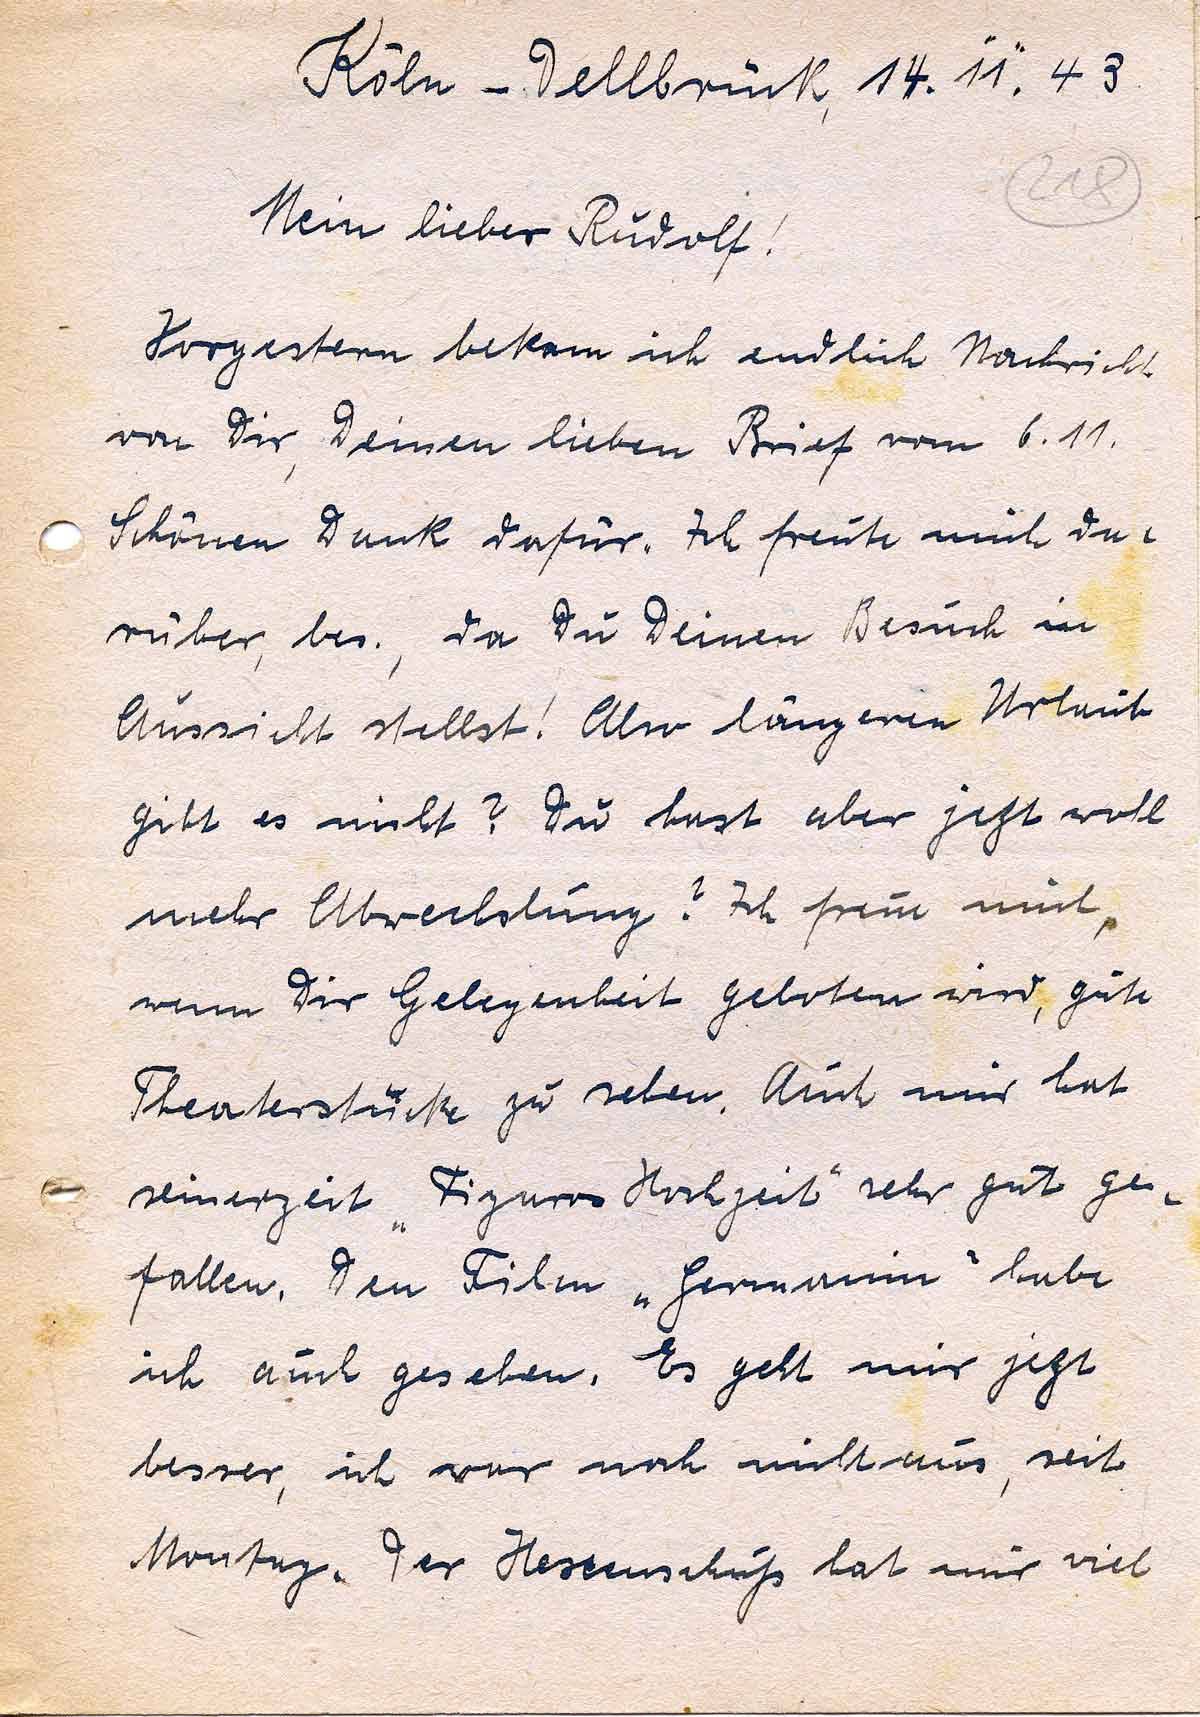 Köln-Dellbrück, 14. 11. 43
218
Mein lieber Rudolf!
Vorgestern bekam ich endlich Nachricht
von Dir, Deinen lieben Brief vom 6. 11.
Schönen Dank dafür. Ich freute mich da-
rüber, bes., da Du Deinen Besuch in
Aussicht stellst! Also längeren Urlaub
gibt es nicht? Du hast aber jetzt wohl
mehr Abwechslung? Ich freue mich,
wenn Dir Gelegenheit geboten wird, gute
Theaterstücke zu sehen. Auch mir hat
seinerzeit „Figaros Hochzeit“ sehr gut ge-
fallen. Den Film „Germanin“ habe
ich auch gesehen. Es geht mir jetzt
besser, ich war noch nicht aus, seit
Montag. Der Hexenschuß hat mir viel